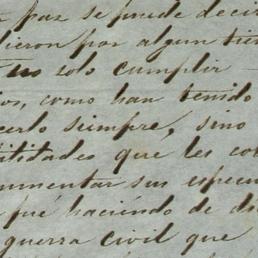 paz se puede decir
dieron por algun tiem
no solo cumplir
ios, como han tenido
cerlo siempre, sino
ilidades que les co
umentar sus
fué haciendo de di
guerra civil que